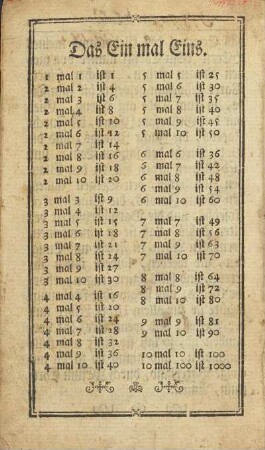 Das Ein mal Eins.
1 mal 1 ist 1
2 mal 2 ist 4
2 mal 3 ist 6
2 mal 4 ist 8
2 mal 5 ist 10
2 mal 6 ist 12
2 mal 7 ist 14
2 mal 8 ist 16
2 mal 9 ist 18
2 mal 10 ist 20
3 mal 3 ist 9
3 mal 4 ist 12
3 mal 5 ist 15
3 mal 6 ist 18
3 mal 7 ist 21
3 mal 8 ist 24
3 mal 9 ist 27
3 mal 10 ist 30
4 mal 4 ist 16
4 mal 5 ist 20
4 mal 6 ist 24
4 mal 7 ist 28
4 mal 8 ist 32
4 mal 9 ist 36
4 mal 10 ist 40
5 mal 5 ist 25
5 mal 6 ist 30
5 mal 7 ist 35
5 mal 8 ist 40
5 mal 9 ist 45
5 mal 10 ist 50
6 mal 6 ist 36
6 mal 7 ist 42
6 mal 8 ist 48
6 mal 9 ist 54
6 mal 10 ist 60
7 mal 7 ist 49
7 mal 8 ist 56
7 mal 9 ist 63
7 mal 10 ist 70
8 mal 8 ist 64
8 mal 9 ist 72
8 mal 10 ist 80
9 mal 9 ist 81
9 mal 10 ist 90
10 mal 10 ist 100
10 mal 100 ist 1000